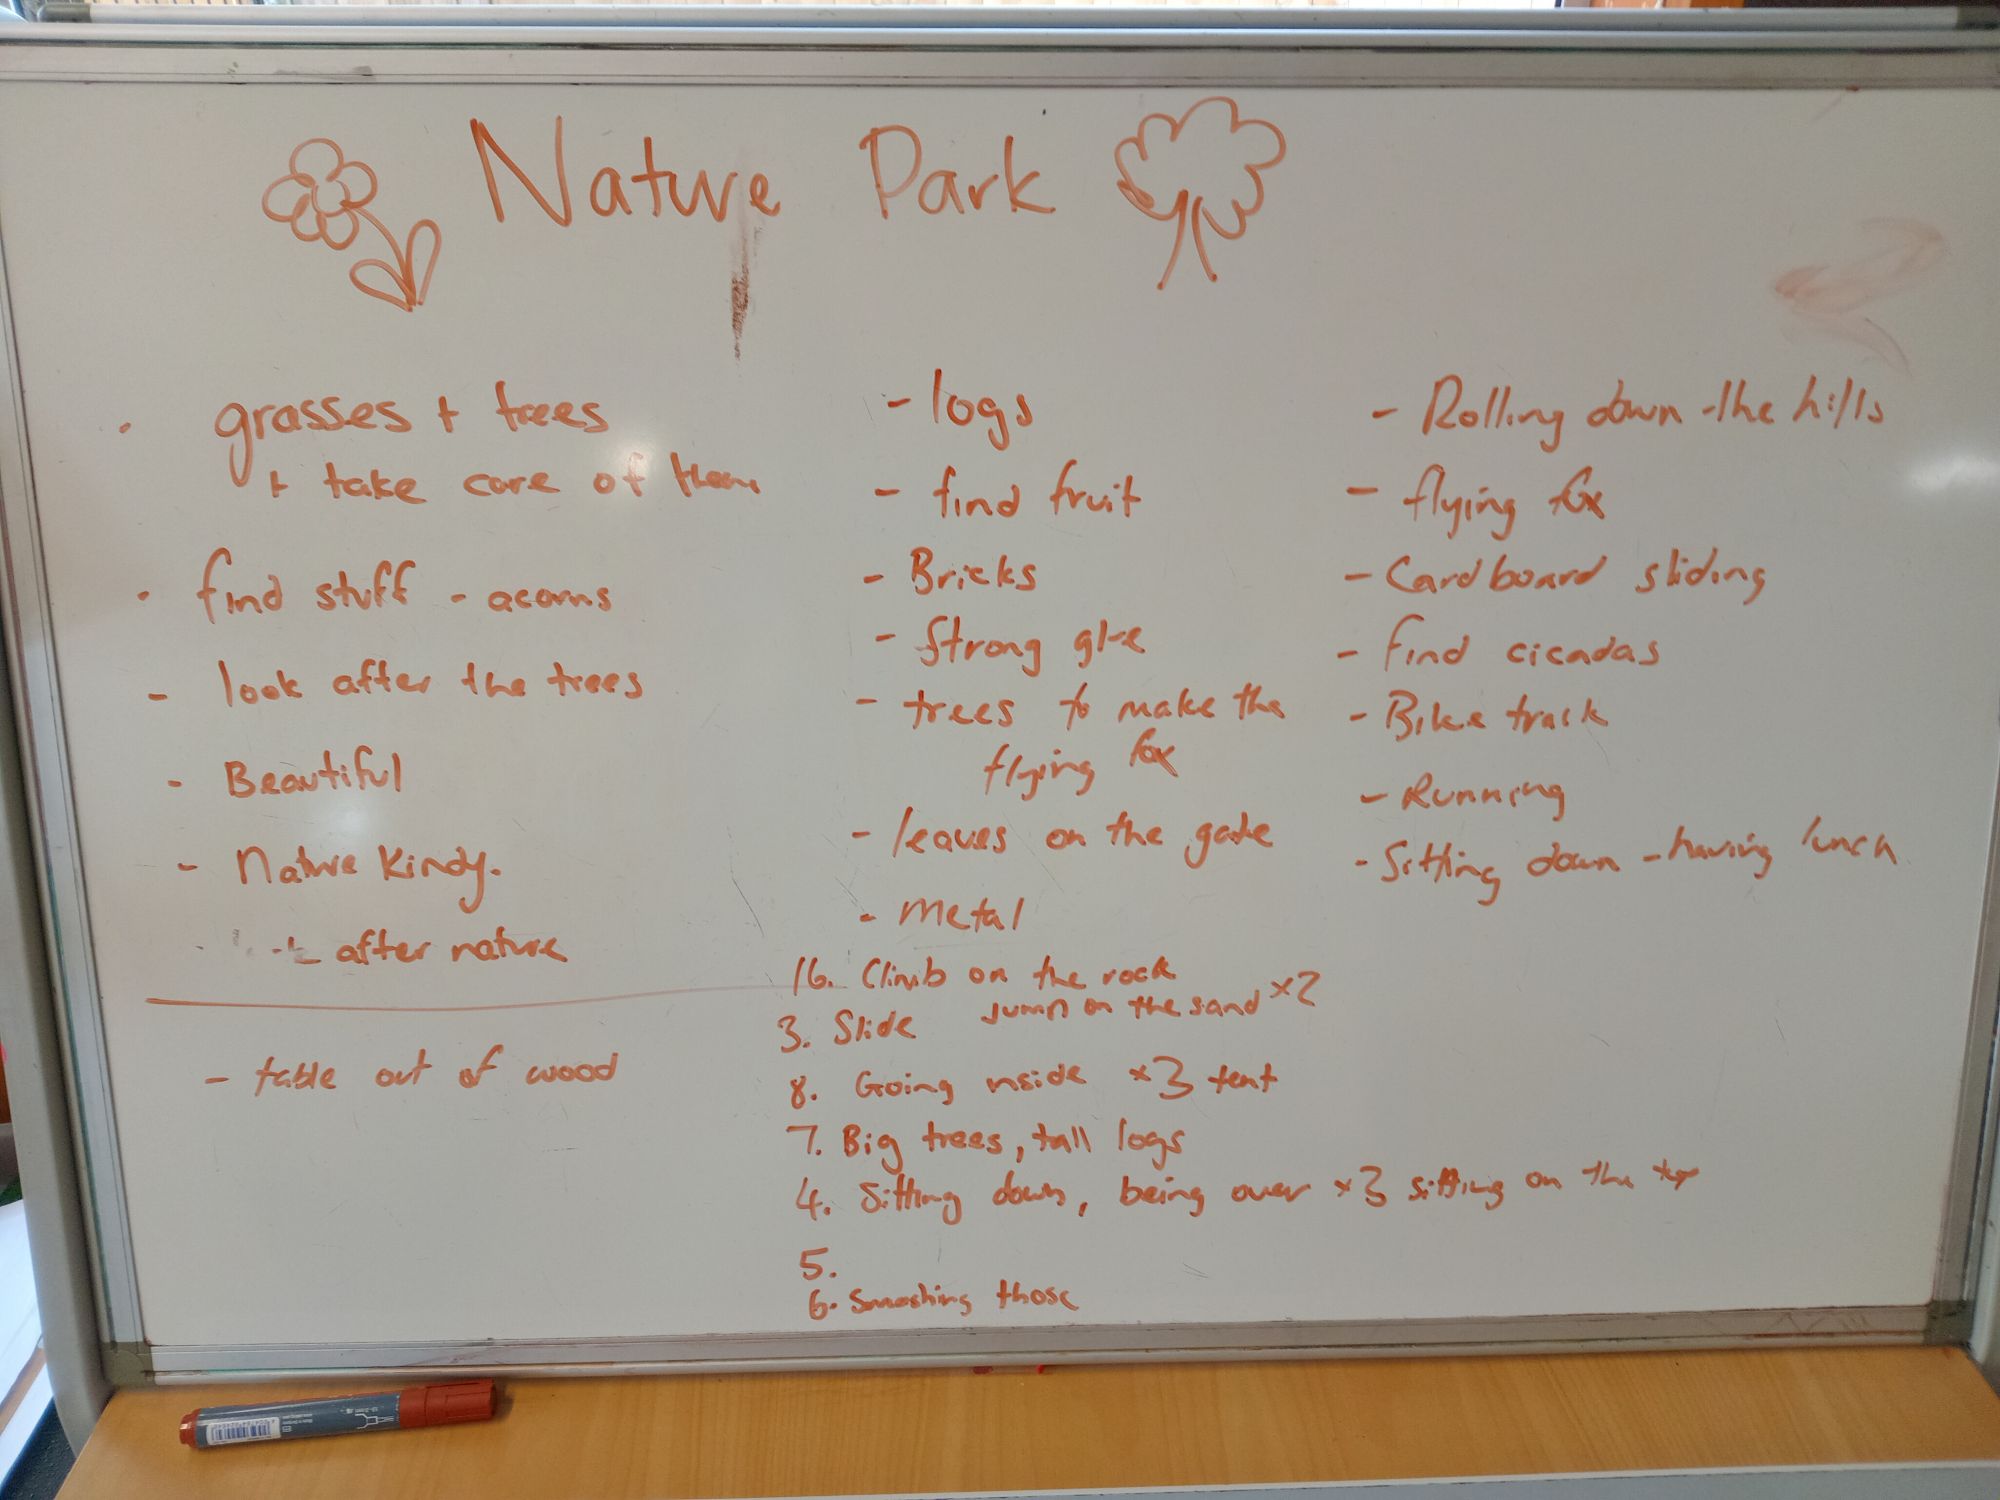 Nature Park
grasses + trees
+ take care of them
find stuff - acorns
- look after the trees
- Beautiful
- Nature Kindy.
after nature
- table out of wood
- logs
- find fruit
- Bricks
- Strong glue
- trees to make the
flying fox
- leaves on the gate
- Metal
16. Climb on the rock
jump on the sand x2
3. Slide
8. Going inside x3 tent
7. Big trees, tall logs
4. Sitting down, being over x3 sitting on the top
5.
6. Smashing those
- Rolling down the hills
- flying fox
- Cardboard sliding
- find cicadas
- Bike track
- Running
- Sitting down - having lunch